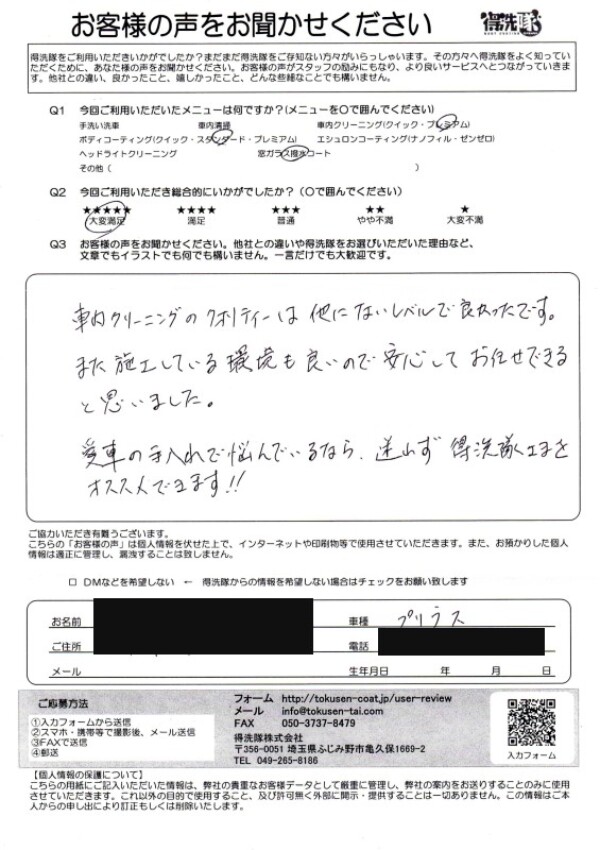 お客様の声をお聞かせください
得洗隊
得洗隊をご利用いただきいかがでしたか？まだまだ得洗隊をご存知ない方々がいらっしゃいます。その方々へ得洗隊をよく知っていただくために、あなた様の声をお聞かせください。お客様の声がスタッフの励みにもなり、より良いサービスへとつながっていきます。他社との違い、良かったこと、嬉しかったこと、どんな些細なことでも構いません。
Q1 今回ご利用いただいたメニューは何ですか？(メニューを〇で囲んでください)
手洗い洗車 車内清掃 車内クリーニング(クイック・プレミアム)
ボディコーティング(クイック・スタンダード・プレミアム) エシュロンコーティング(ナノフィル・ゼンゼロ)
ヘッドライトクリーニング 窓ガラス撥水コート
その他（ ）
Q2 今回ご利用いただき総合的にいかがでしたか？（〇で囲んでください）
★★★★★ ★★★★ ★★★ ★★ ★
大変満足 満足 普通 やや不満 大変不満
Q3 お客様の声をお聞かせください。他社との違いや得洗隊をお選びいただいた理由など、
文章でもイラストでも何でも構いません。一言だけでも大歓迎です。
車内クリーニングのクオリティーは他にないレベルで良かったです。
また施工している環境も良いので安心してお任せできる
と思いました。
愛車の手入れで悩んでいるなら、迷わず得洗隊さまを
オススメできます!!
ご協力いただき有難うございます。
こちらの「お客様の声」は個人情報を伏せた上で、インターネットや印刷物等で使用させていただきます。また、お預かりした個人
情報は適正に管理し、漏洩することは致しません。
□ DMなどを希望しない ← 得洗隊からの情報を希望しない場合はチェックをお願い致します
お名前 車種 プリウス
ご住所 電話
メール 生年月日 年 月 日
ご応募方法
①入力フォームから送信
②スマホ・携帯等で撮影後、メール送信
③FAXで送信
④郵送
フォーム http://tokusen-coat.jp/user-review
メール info@tokusen-tai.com
FAX 050-3737-8479
得洗隊株式会社
〒356-0051 埼玉県ふじみ野市亀久保1669-2
TEL 049-265-8186
入力フォーム
【個人情報の保護について】
こちらの用紙にご記入いただいた情報は、弊社の貴重なお客様データとして厳重に管理し、弊社の案内をお送りすることのみに使用
させていただきます。これ以外の目的で使用すること、及び許可無く外部に開示・提供することは一切ありません。この情報はご本
人からの申し出により訂正もしくは削除いたします。